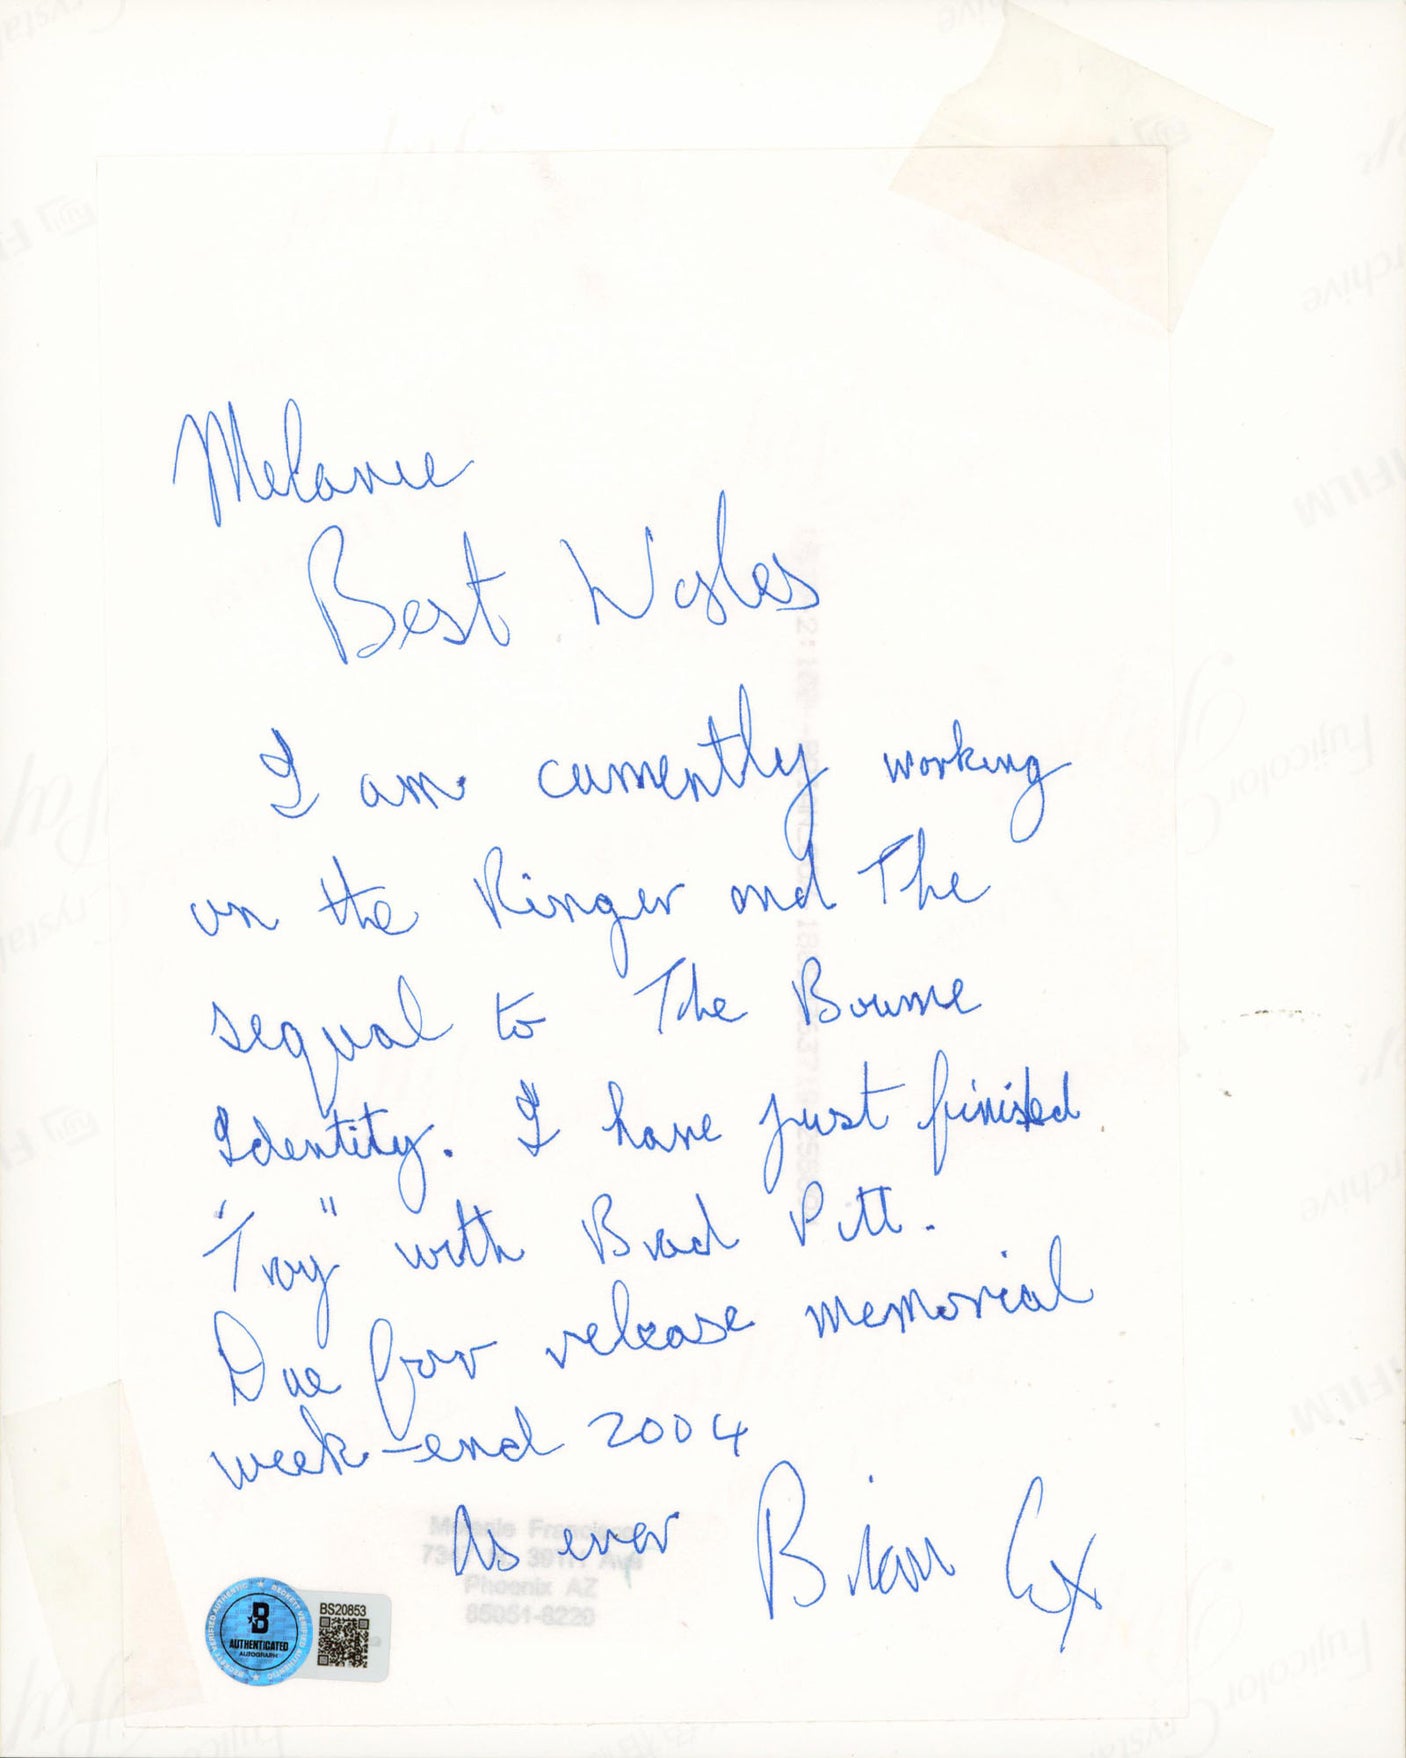 Melanie
Best Wishes
I am currently working
on the Ringer and The
sequal to The Bourne
Identity. I have just finished
"Troy" with Brad Pitt.
Due for release memorial
week-end 2004
As ever Brian Cox
Phoenix AZ
85051-8220
BS20853
B
AUTHENTICATED
AUTOGRAPH
BECKETT VERIFIED AUTHENTIC
Fujicolor Crystal
Archive
FUJIFILM